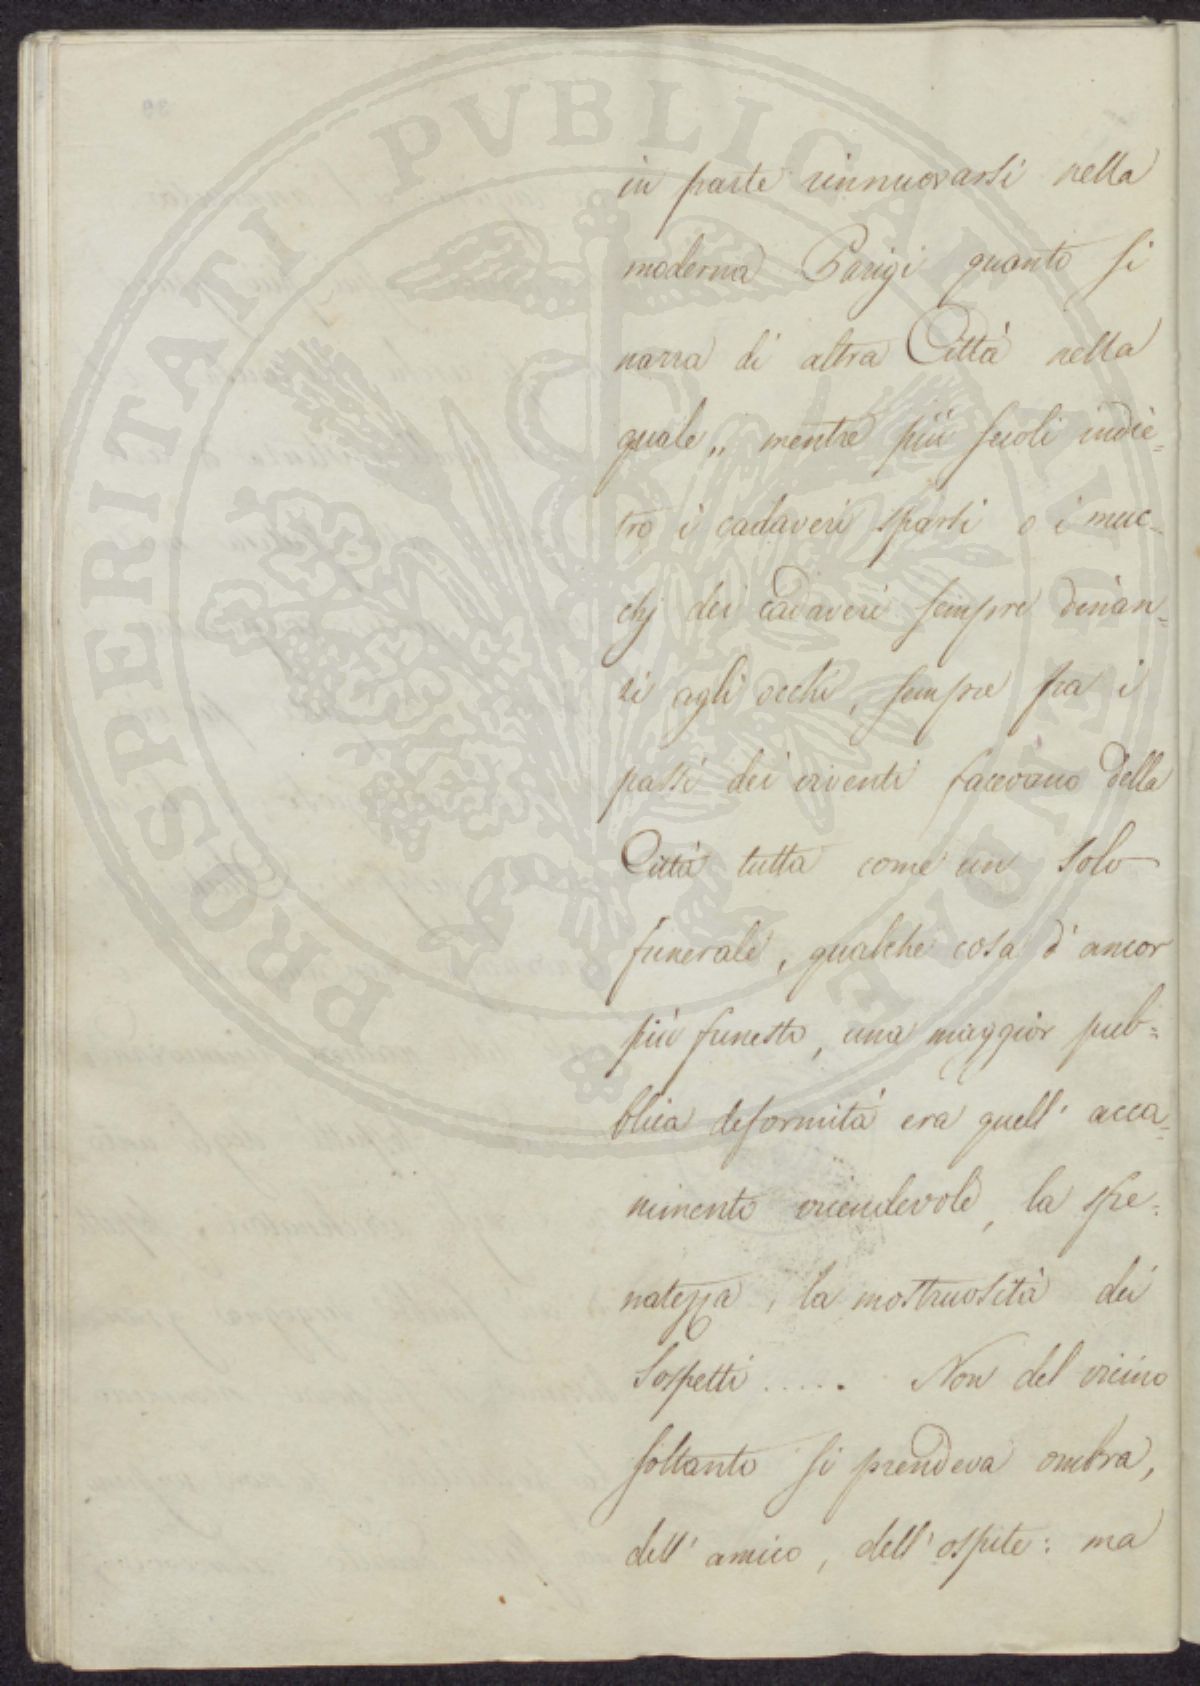 in parte rinnuovarsi nella
moderna Parigi quanto si
narra di altra Città nella
quale „ mentre più secoli indie=
tro i cadaveri sparsi o i muc=
chj dei cadaveri sempre dinan=
zi agli occhi, sempre fra i
passi dei viventi facevano della
Città tutta come un solo
funerale, qualche cosa d'ancor
più funesto, una maggior pub=
blica deformità era quell' acca=
nimento vicendevole, la sfre=
natezza, la mostruosità dei
Sospetti ..... Non del vicino
soltanto si prendeva ombra,
dell' amico, dell' ospite: ma
PROSPERITATI PVBLICAE VINDEX